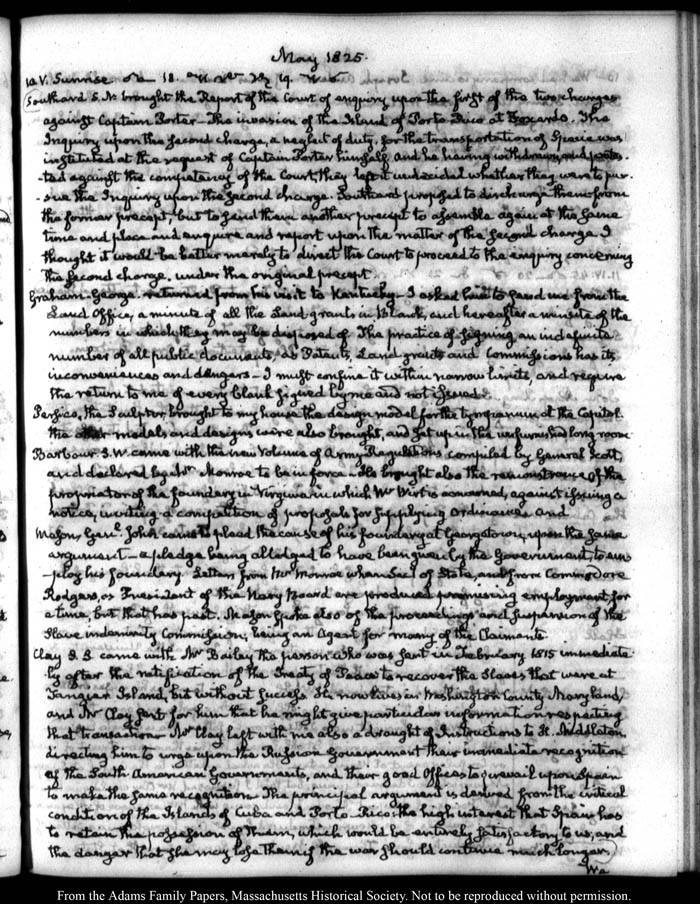 May 1825.
10. V. Sunrise
Southard S. N. brought the Report of the Court of enquiry upon the first of the two charges
against Captain Porter—The invasion of the Island of Porto Rico at The
Inquiry upon the second charge, a neglect of duty, for the transportation of Specie was
instituted at the request of Captain Porter himself, and he having withdrawn and protes-
-ted against the competency of the Court, they left it undecided whether they were to pur-
-sue the Inquiry upon the second charge. Southard proposed to discharge them from
the former precept, but to send them another precept to assemble again at the same
time and place and enquire and report upon the matter of the second charge. I
thought it would be better merely to direct the Court to proceed to the enquiry concerning
the second charge, under the original precept.
Graham—George. returned from his visit to Kentucky—I asked him to send me from the
Land Office, a minute of all the Land grants in blank, and hereafter a minute of the
numbers in which they may be disposed of. The practice of signing an indefinite
number of all public documents, as Patents, Land-grants and Commissions has its
inconveniences and dangers—I must confine it within narrow limits, and require
the return to me of every blank signed by me and not issued.
Persico, the Sculptor, brought to my house the design model for the tympanum at the Capitol.
the other models and designs were also brought, and set up in the unfurnished long room
Barbour S. W. came with the new volume of Army Regulations compiled by General Scott,
and declared by Mr Monroe to be in force—He brought also the remonstrance of the
proprietor of the foundery in Virginia in which Mr Wirt is concerned, against issuing a
notice, inviting a competition of proposals for supplying ordinance and
Mason, Genl. John came to plead the cause of his foundery at Georgetown, upon the same
argument—a pledge being alledged to have been given by the Government, to em-
-ploy his foundery. Letters from Mr Monroe when Secy. of State, and from Commodore
Rodgers, as President of the Navy Board are produced promising employment for
a time, but that has past. Mason spoke also of the proceedings and suspension of the
Slave indemnity Commission, being an Agent for many of the Claimants
Clay S. S. came with Mr Bailey the person who was sent in February 1815 immediate-
ly after the ratification of the Treaty of Peace to recover the Slaves that were at
Tangier Island, but without success. He now lives in Washington County Maryland,
and Mr Clay sent for him that he might give particular information respecting
that transaction. Mr Clay left with me also a draught of Instructions to H. Middleton,
directing him to urge upon the Russian Government their immediate recognition
of the South-American Governments, and their good Offices to prevail upon Spain
to make the same recognition. The principal argument is derived from the critical
condition of the Islands of Cuba and Porto-Rico: the high interest that Spain has
to retain the possession of them, which would be entirely satisfactory to us, and
the danger that she may lose them if the war should continue much longer.
We
From the Adams Family Papers, Massachusetts Historical Society. Not to be reproduced without permission.